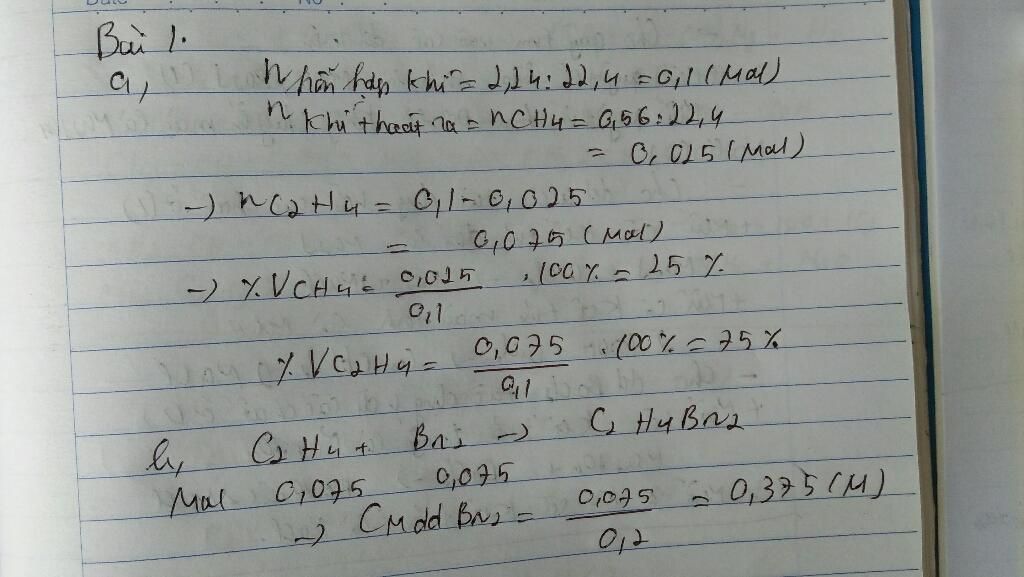 Bài 1.
a, n hỗn hợp khí = 2,24 : 22,4 = 0,1 (mol)
n khí thoát ra = nCH4 = 0,56 : 22,4
= 0,025 (mol)
-> nC2H4 = 0,1 - 0,025
= 0,075 (mol)
-> % VCH4 = 0,025 / 0,1 . 100% = 25 %
% VC2H4 = 0,075 / 0,1 . 100% = 75 %
b, C2H4 + Br2 -> C2H4Br2
Mol 0,075 0,075
-> CM dd Br2 = 0,075 / 0,2 = 0,375 (M)